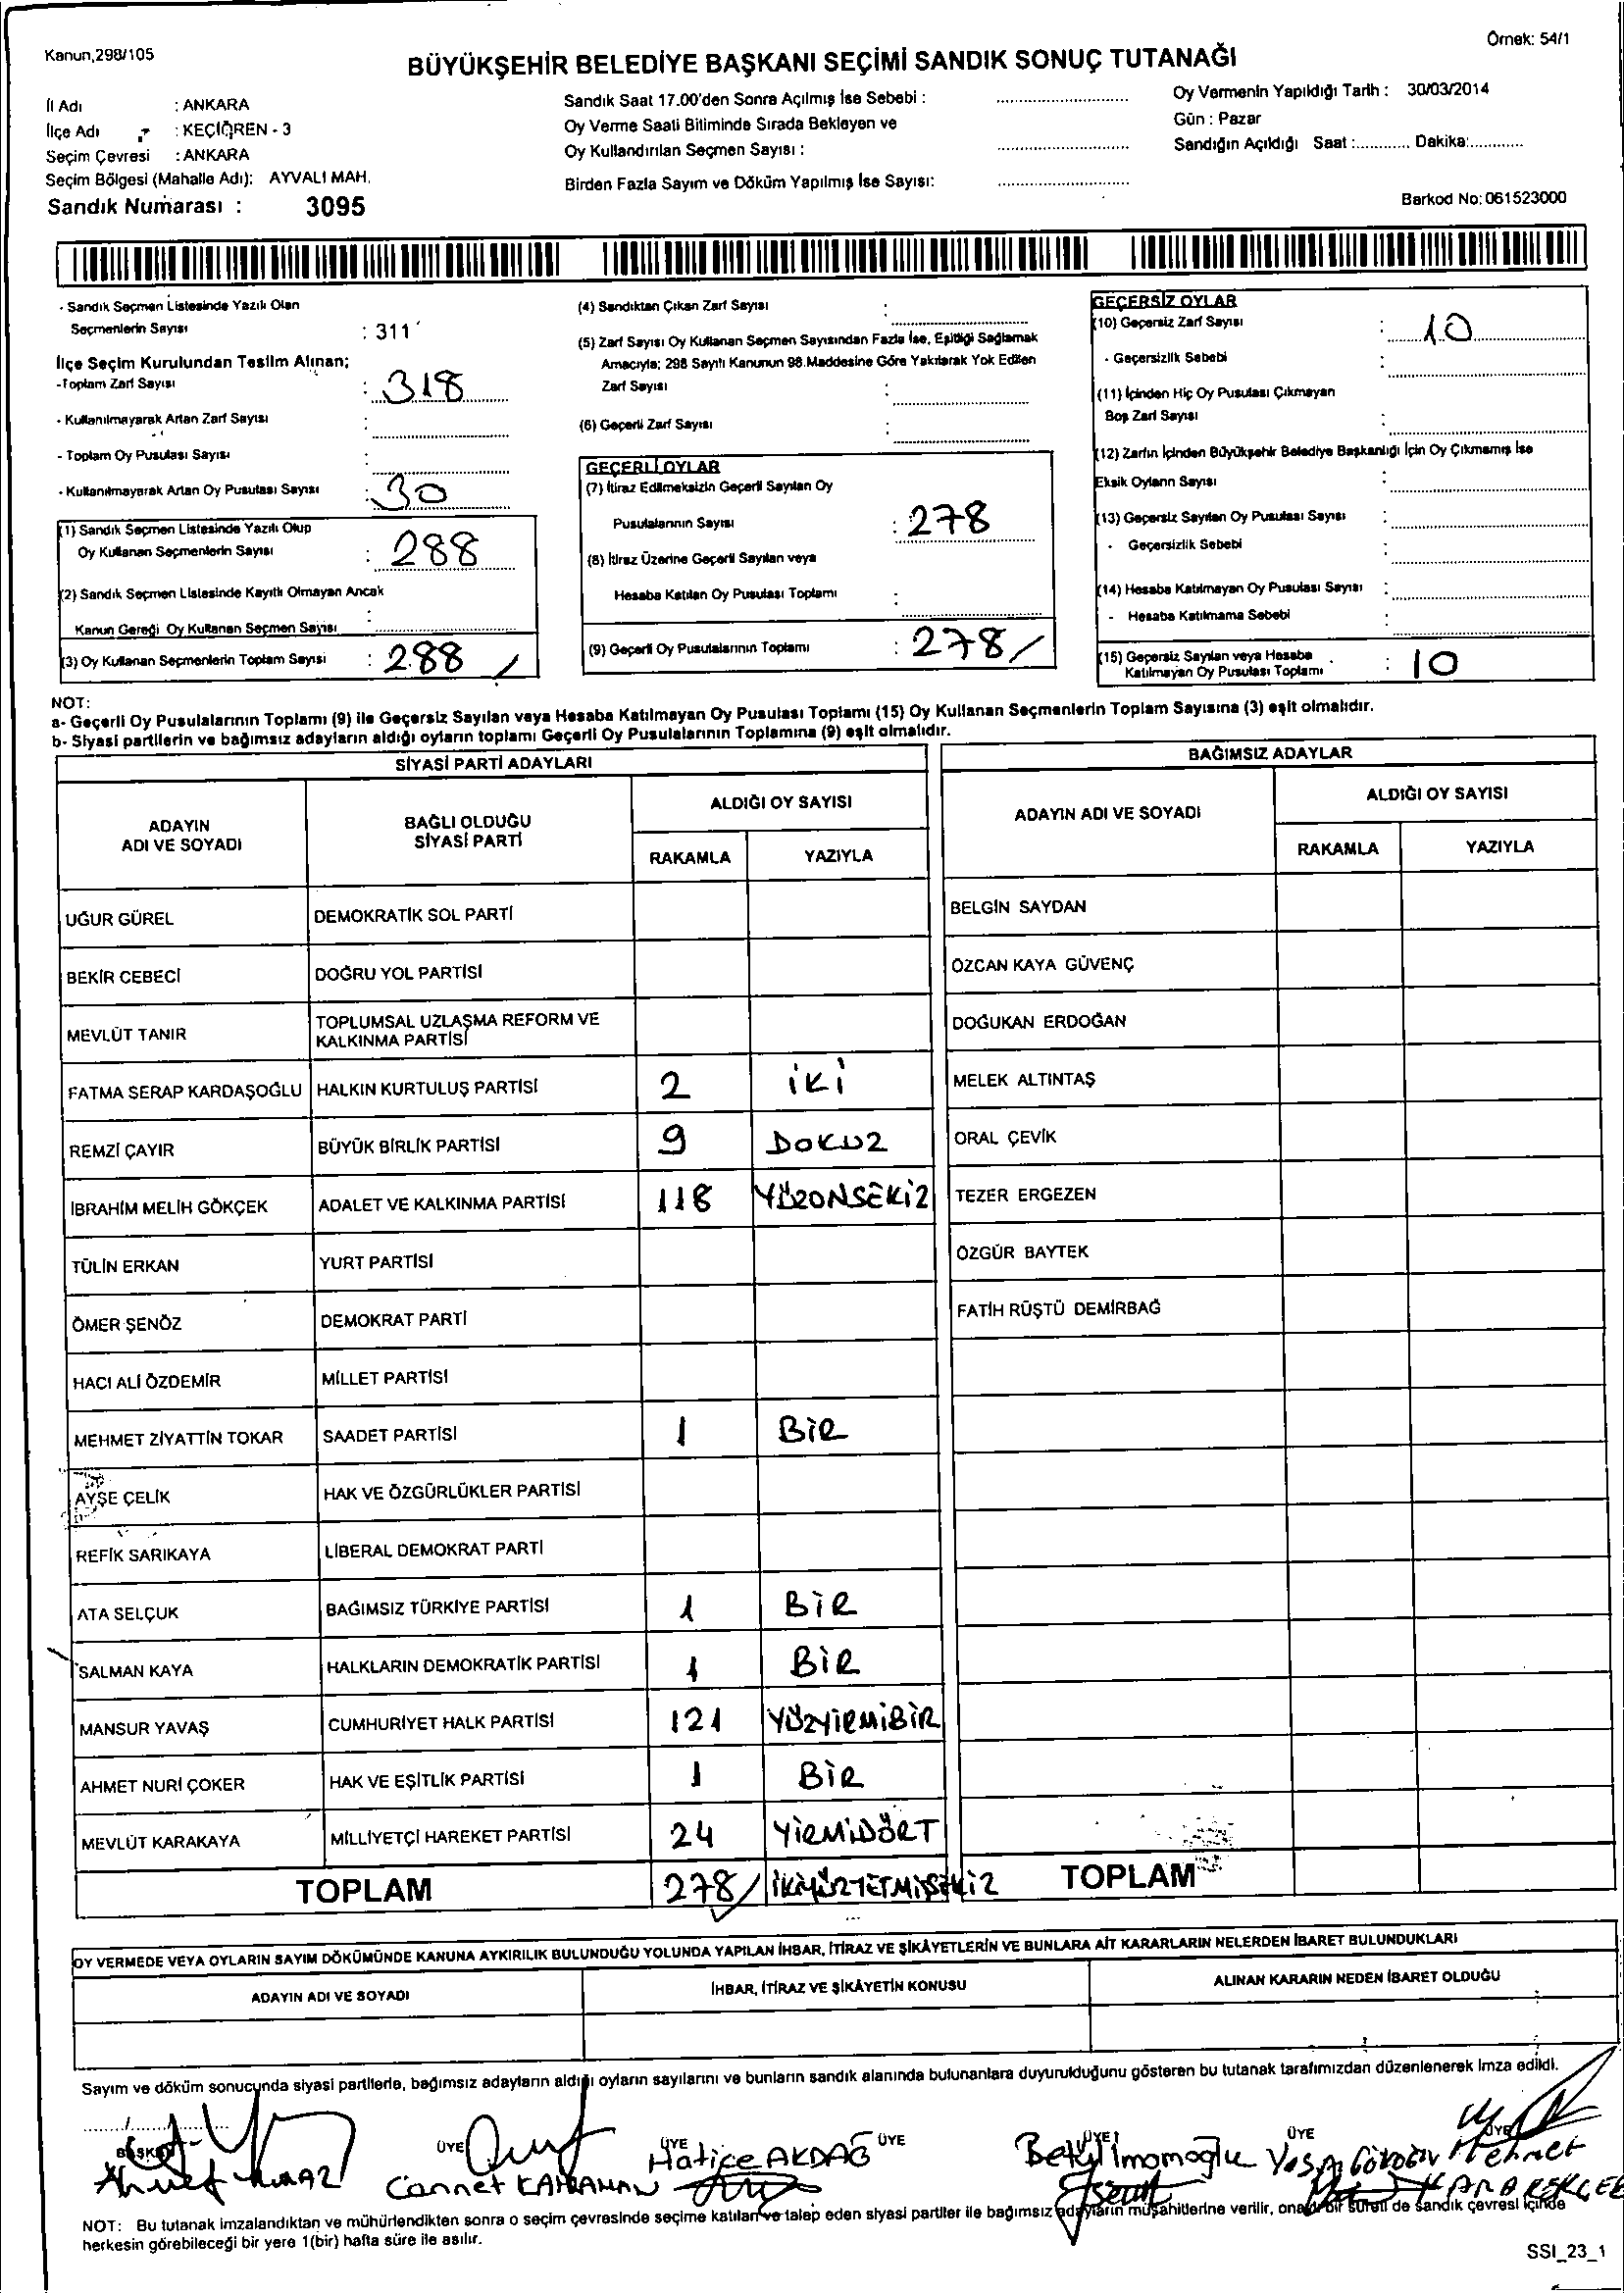 Kanun,298/105
Örnek: 54/1
BÜYÜKŞEHİR BELEDİYE BAŞKANI SEÇİMİ SANDIK SONUÇ TUTANAĞI
İl Adı : ANKARA
İlçe Adı : KEÇİÖREN - 3
Seçim Çevresi : ANKARA
Seçim Bölgesi (Mahalle Adı): AYVALI MAH.
Sandık Numarası : 3095
Sandık Saat 17.00'den Sonra Açılmış İse Sebebi :
Oy Verme Saati Bitiminde Sırada Bekleyen ve
Oy Kullandırılan Seçmen Sayısı :
Birden Fazla Sayım ve Döküm Yapılmış İse Sayısı:
Oy Vermenin Yapıldığı Tarih : 30/03/2014
Gün : Pazar
Sandığın Açıldığı Saat :............ Dakika:............
Barkod No: 061523000
- Sandık Seçmen Listesinde Yazılı Olan
Seçmenlerin Sayısı : 311
İlçe Seçim Kurulundan Teslim Alınan;
-Toplam Zarf Sayısı : 318
- Kullanılmayarak Artan Zarf Sayısı :
- Toplam Oy Pusulası Sayısı :
- Kullanılmayarak Artan Oy Pusulası Sayısı : 30
(1) Sandık Seçmen Listesinde Yazılı Olup
Oy Kullanan Seçmenlerin Sayısı : 288
(2) Sandık Seçmen Listesinde Kayıtlı Olmayan Ancak
Kanun Gereği Oy Kullanan Seçmen Sayısı :
(3) Oy Kullanan Seçmenlerin Toplam Sayısı : 288
(4) Sandıktan Çıkan Zarf Sayısı :
(5) Zarf Sayısı Oy Kullanan Seçmen Sayısından Fazla İse, Eşitliği Sağlamak
Amacıyla; 298 Sayılı Kanunun 98.Maddesine Göre Yakılarak Yok Edilen
Zarf Sayısı :
(6) Geçerli Zarf Sayısı :
GEÇERLİ OYLAR
(7) İtiraz Edilmeksizin Geçerli Sayılan Oy
Pusulalarının Sayısı : 278
(8) İtiraz Üzerine Geçerli Sayılan veya
Hesaba Katılan Oy Pusulası Toplamı :
(9) Geçerli Oy Pusulalarının Toplamı : 278
GEÇERSİZ OYLAR
(10) Geçersiz Zarf Sayısı : 10
- Geçersizlik Sebebi :
(11) İçinden Hiç Oy Pusulası Çıkmayan
Boş Zarf Sayısı :
(12) Zarfın İçinden Büyükşehir Belediye Başkanlığı İçin Oy Çıkmamış İse
Eksik Oyların Sayısı :
(13) Geçersiz Sayılan Oy Pusulası Sayısı :
- Geçersizlik Sebebi :
(14) Hesaba Katılmayan Oy Pusulası Sayısı :
- Hesaba Katılmama Sebebi :
(15) Geçersiz Sayılan veya Hesaba
Katılmayan Oy Pusulası Toplamı : 10
NOT:
a- Geçerli Oy Pusulalarının Toplamı (9) ile Geçersiz Sayılan veya Hesaba Katılmayan Oy Pusulası Toplamı (15) Oy Kullanan Seçmenlerin Toplam Sayısına (3) eşit olmalıdır.
b- Siyasi partilerin ve bağımsız adayların aldığı oyların toplamı Geçerli Oy Pusulalarının Toplamına (9) eşit olmalıdır.
SİYASİ PARTİ ADAYLARI
ADAYIN ADI VE SOYADI
BAĞLI OLDUĞU SİYASİ PARTİ
ALDIĞI OY SAYISI
RAKAMLA YAZIYLA
UĞUR GÜREL DEMOKRATİK SOL PARTİ
BEKİR CEBECİ DOĞRU YOL PARTİSİ
MEVLÜT TANIR TOPLUMSAL UZLAŞMA REFORM VE
KALKINMA PARTİSİ
FATMA SERAP KARDAŞOĞLU HALKIN KURTULUŞ PARTİSİ 2 İKİ
REMZİ ÇAYIR BÜYÜK BİRLİK PARTİSİ 9 DOKUZ
İBRAHİM MELİH GÖKÇEK ADALET VE KALKINMA PARTİSİ 118 YÜZONSEKİZ
TÜLİN ERKAN YURT PARTİSİ
ÖMER ŞENÖZ DEMOKRAT PARTİ
HACI ALİ ÖZDEMİR MİLLET PARTİSİ
MEHMET ZİYATTİN TOKAR SAADET PARTİSİ 1 BİR
AYŞE ÇELİK HAK VE ÖZGÜRLÜKLER PARTİSİ
REFİK SARIKAYA LİBERAL DEMOKRAT PARTİ
ATA SELÇUK BAĞIMSIZ TÜRKİYE PARTİSİ 1 BİR
SALMAN KAYA HALKLARIN DEMOKRATİK PARTİSİ 1 BİR
MANSUR YAVAŞ CUMHURİYET HALK PARTİSİ 121 YÜZYİRMİBİR
AHMET NURİ ÇOKER HAK VE EŞİTLİK PARTİSİ 1 BİR
MEVLÜT KARAKAYA MİLLİYETÇİ HAREKET PARTİSİ 24 YİRMİDÖRT
TOPLAM 278 İKİYÜZYETMİŞSEKİZ
BAĞIMSIZ ADAYLAR
ADAYIN ADI VE SOYADI
ALDIĞI OY SAYISI
RAKAMLA YAZIYLA
BELGİN SAYDAN
ÖZCAN KAYA GÜVENÇ
DOĞUKAN ERDOĞAN
MELEK ALTINTAŞ
ORAL ÇEVİK
TEZER ERGEZEN
ÖZGÜR BAYTEK
FATİH RÜŞTÜ DEMİRBAĞ
TOPLAM
OY VERMEDE VEYA OYLARIN SAYIM DÖKÜMÜNDE KANUNA AYKIRILIK BULUNDUĞU YOLUNDA YAPILAN İHBAR, İTİRAZ VE ŞİKÂYETLERİN VE BUNLARA AİT KARARLARIN NELERDEN İBARET BULUNDUKLARI
ADAYIN ADI VE SOYADI İHBAR, İTİRAZ VE ŞİKÂYETİN KONUSU ALINAN KARARIN NEDEN İBARET OLDUĞU
Sayım ve döküm sonucunda siyasi partilerle, bağımsız adayların aldığı oyların sayılarını ve bunların sandık alanında bulunanlara duyurulduğunu gösteren bu tutanak tarafımızdan düzenlenerek imza edildi.
BAŞKAN ÜYE ÜYE ÜYE ÜYE ÜYE ÜYE
Ahmet Cennet KAHRAMAN Hatice AKDAĞ Betül İmamoğlu Mehmet
NOT: Bu tutanak imzalandıktan ve mühürlendikten sonra o seçim çevresinde seçime katılan ve talep eden siyasi partiler ile bağımsız adayların müşahitlerine verilir, onaylı bir sureti de sandık çevresi içinde
herkesin görebileceği bir yere 1(bir) hafta süre ile asılır.
SSI_23_1